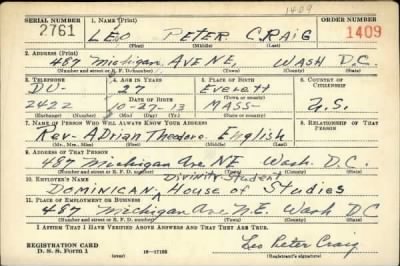 1409
SERIAL NUMBER 1. NAME (Print) ORDER NUMBER
2761 LEO PETER CRAIG 1409
(First) (Middle) (Last)
2. ADDRESS (Print)
487 Michigan AVE NE, WASH D.C.
(Number and street or R. F. D. number) (Town) (County) (State)
3. TELEPHONE 4. AGE IN YEARS 5. PLACE OF BIRTH 6. COUNTRY OF CITIZENSHIP
DU- 27 Everett
DATE OF BIRTH (Town or county)
2422 10-27-13 MASS- U.S.
(Exchange) (Number) (Mo.) (Day) (Yr.) (State or country)
7. NAME OF PERSON WHO WILL ALWAYS KNOW YOUR ADDRESS 8. RELATIONSHIP OF THAT PERSON
Rev- ADrian Theodore English
(Mr., Mrs., Miss) (First) (Middle) (Last)
9. ADDRESS OF THAT PERSON
487 Michigan Ave NE Wash. D.C.
(Number and street or R. F. D. number) (Town) (County) (State)
10. EMPLOYER'S NAME Divinity Student
DOMINICAN House of Studies
11. PLACE OF EMPLOYMENT OR BUSINESS
487 Michigan Ave N.E. Wash DC
(Number and street or R. F. D. number) (Town) (County) (State)
I AFFIRM THAT I HAVE VERIFIED ABOVE ANSWERS AND THAT THEY ARE TRUE.
REGISTRATION CARD
D. S. S. Form 1 16-17105 Leo Peter Craig
(Registrant's signature)